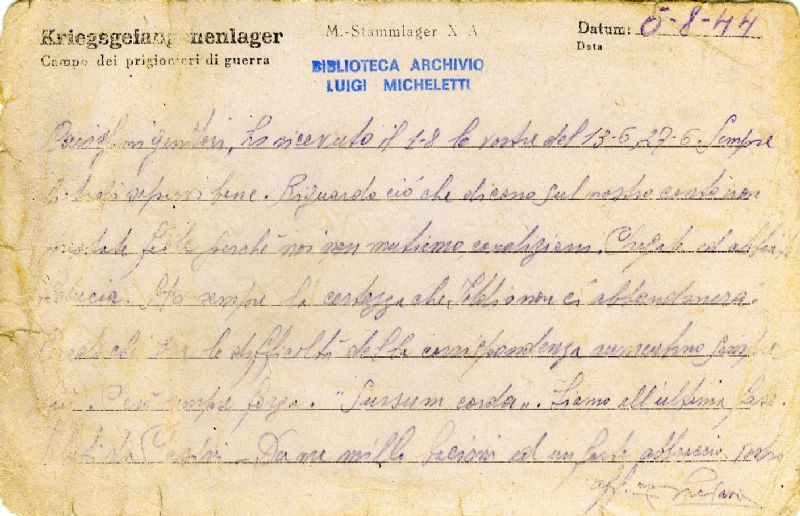 Kriegsgefangenenlager
Campo dei prigionieri di guerra
M.-Stammlager X A
Datum: 5-8-44
Data
BIBLIOTECA ARCHIVIO
LUIGI MICHELETTI
genitori, ho ricevuto il 1-8 le vostre del 13-6, 27-6. Sempre
sapervi bene. Riguardo ciò che dicono sul nostro conto non
perchè noi non mutiamo condizioni. ed abbiate
sempre la certezza che Iddio non ci abbandonerà.
le difficoltà della corrispondenza sempre
sempre forza. "Sursum corda". Siamo all'ultima
Da me mille bacioni ed un forte abbraccio
aff.